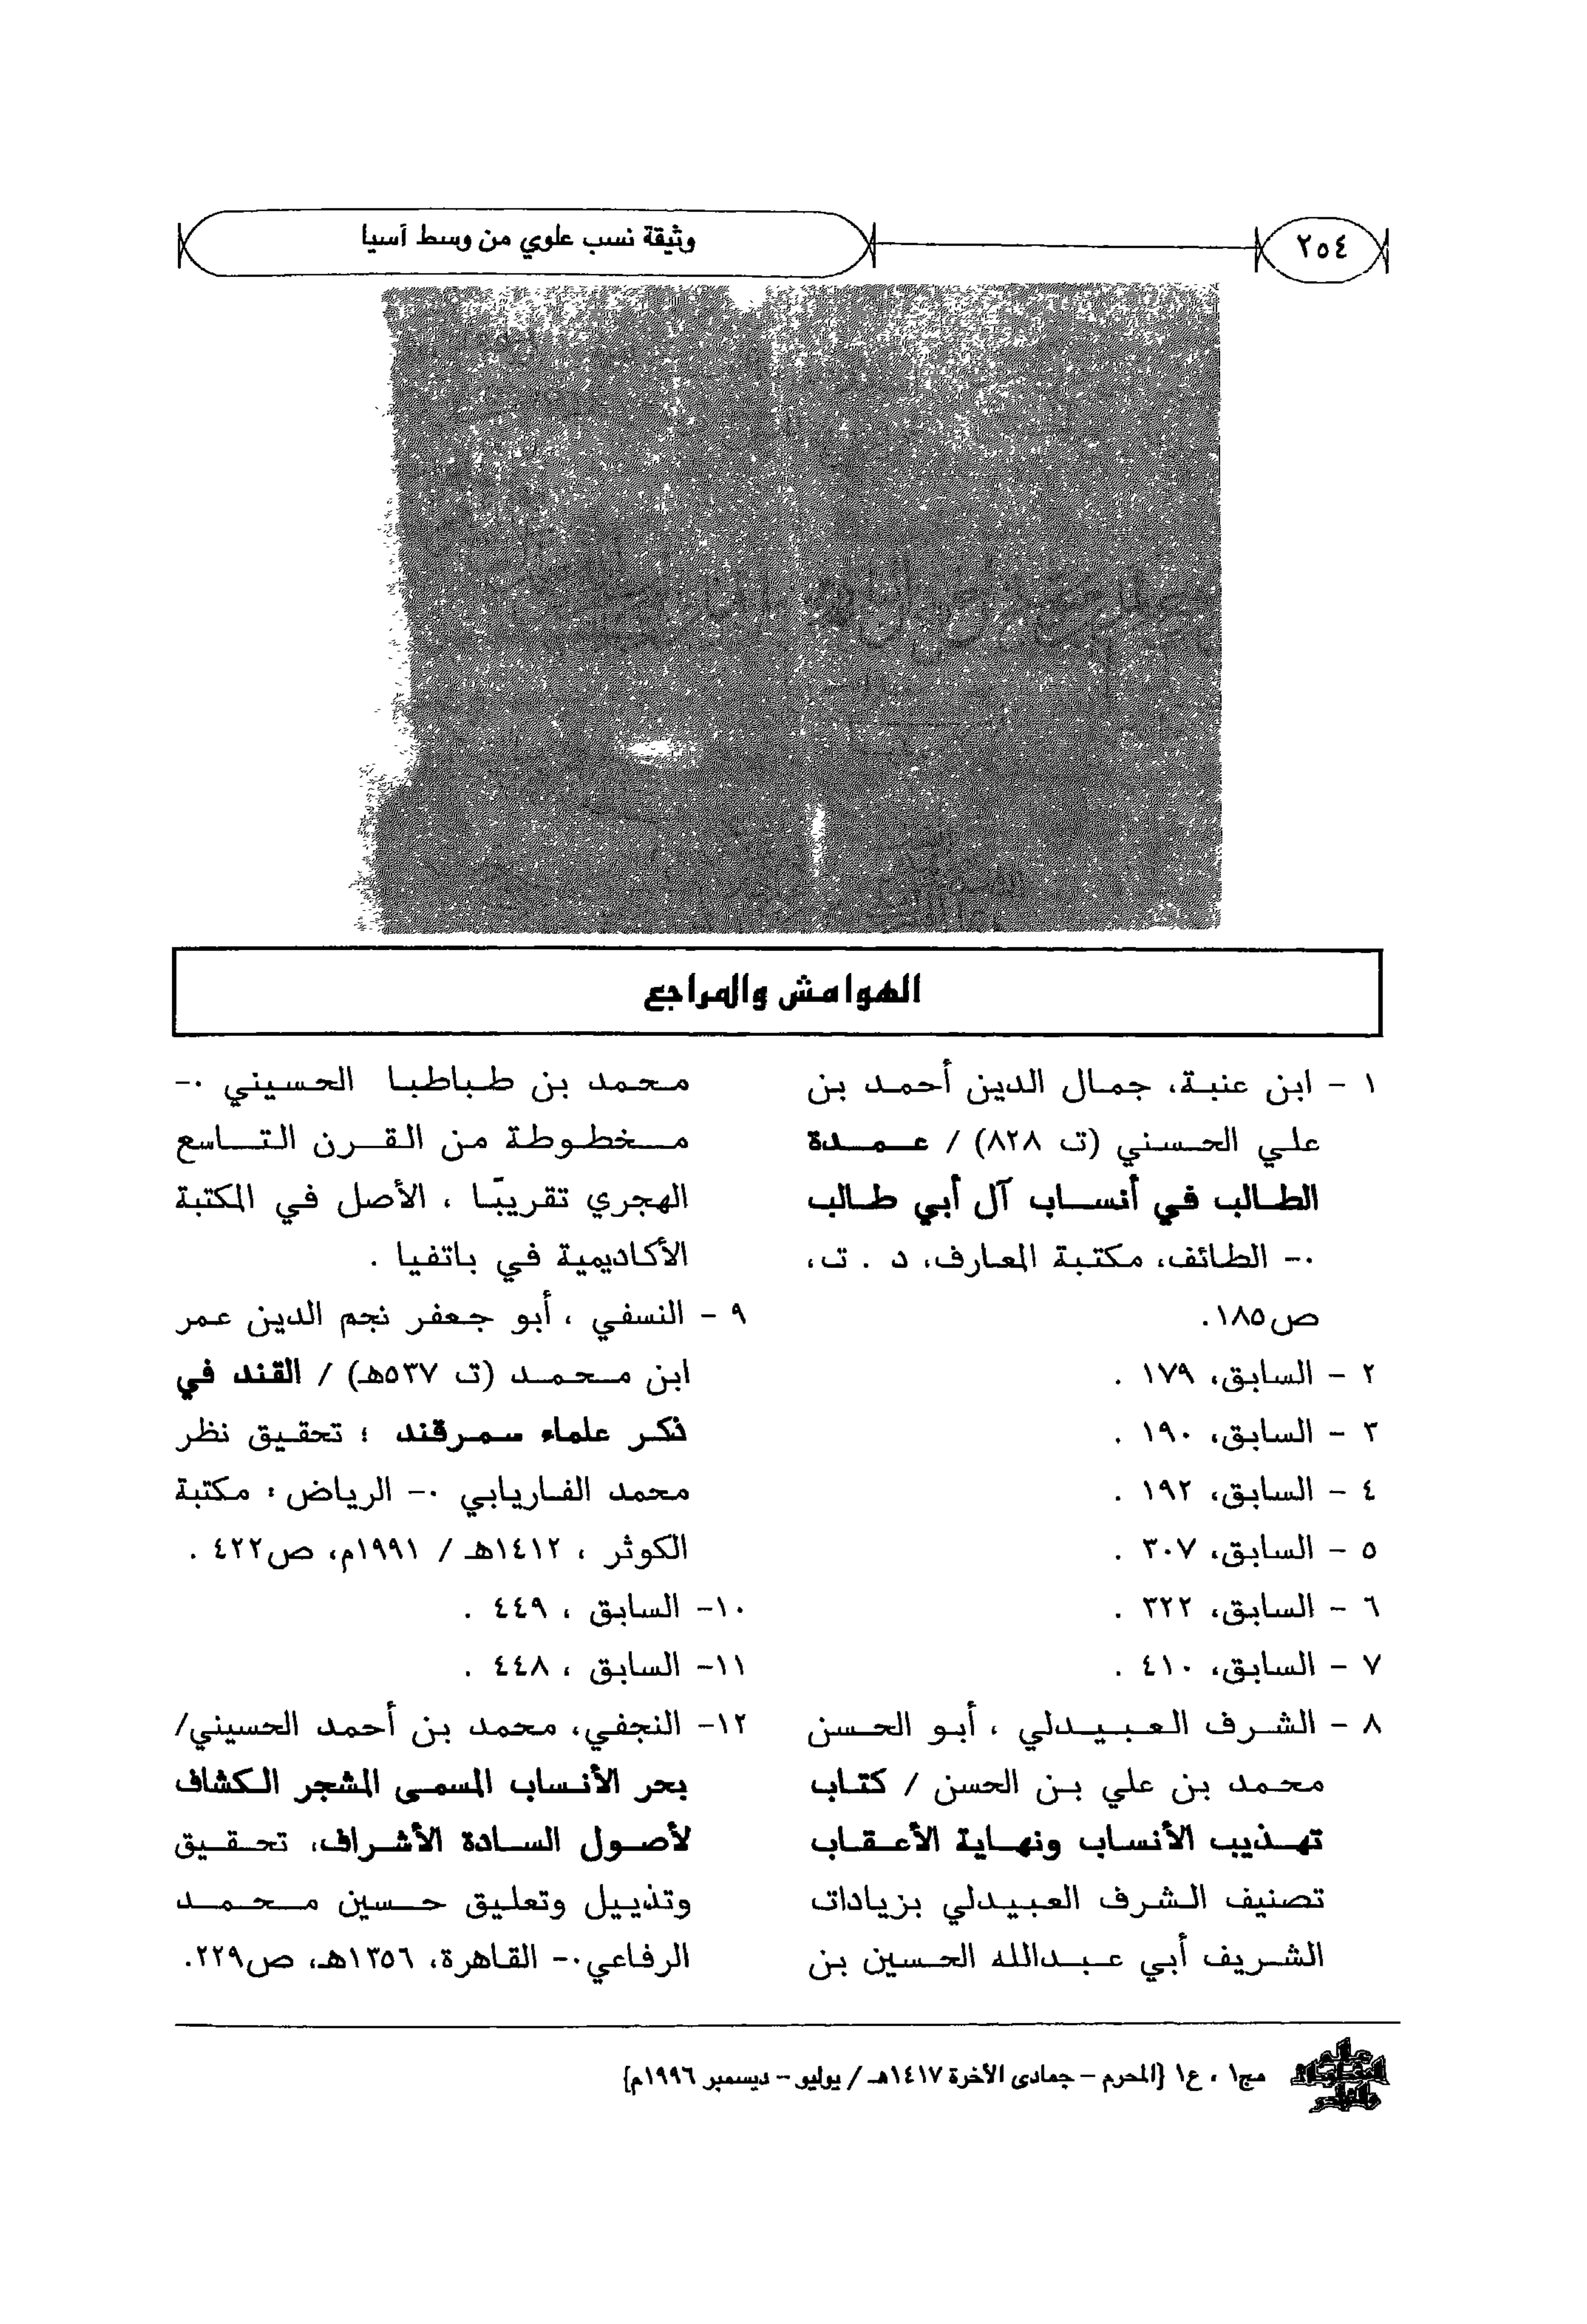 ٢٥٤
وثيقة نسب علوي من وسط آسيا
الهوامش والمراجع
١ - ابن عنبة، جمال الدين أحمد بن
علي الحسني (ت ٨٢٨) / عمدة
الطالب في أنساب آل أبي طالب
.- الطائف، مكتبة المعارف، د . ت،
ص١٨٥.
٢ - السابق، ١٧٩ .
٣ - السابق، ١٩٠ .
٤ - السابق، ١٩٢ .
٥ - السابق، ٣٠٧ .
٦ - السابق، ٣٢٢ .
٧ - السابق، ٤١٠ .
٨ - الشرف العبيدلي ، أبو الحسن
محمد بن علي بن الحسن / كتاب
تهذيب الأنساب ونهاية الأعقاب
تصنيف الشرف العبيدلي بزيادات
الشريف أبي عبدالله الحسين بن
محمد بن طباطبا الحسيني .-
مخطوطة من القرن التاسع
الهجري تقريبًا ، الأصل في المكتبة
الأكاديمية في باتفيا .
٩ - النسفي ، أبو جعفر نجم الدين عمر
ابن محمد (ت ٥٣٧هـ) / القند في
ذكر علماء سمرقند ؛ تحقيق نظر
محمد الفاريابي .- الرياض : مكتبة
الكوثر ، ١٤١٢هـ / ١٩٩١م، ص٤٢٢ .
١٠- السابق ، ٤٤٩ .
١١- السابق ، ٤٤٨ .
١٢- النجفي، محمد بن أحمد الحسيني/
بحر الأنساب المسمى المشجر الكشاف
لأصول السادة الأشراف، تحقيق
وتذييل وتعليق حسين محمد
الرفاعي.- القاهرة، ١٣٥٦هـ، ص٢٢٩.
عالم المخطوطات والنوادر
مج١ ، ع١ {المحرم - جمادى الآخرة ١٤١٧هـ / يوليو - ديسمبر ١٩٩٦م}